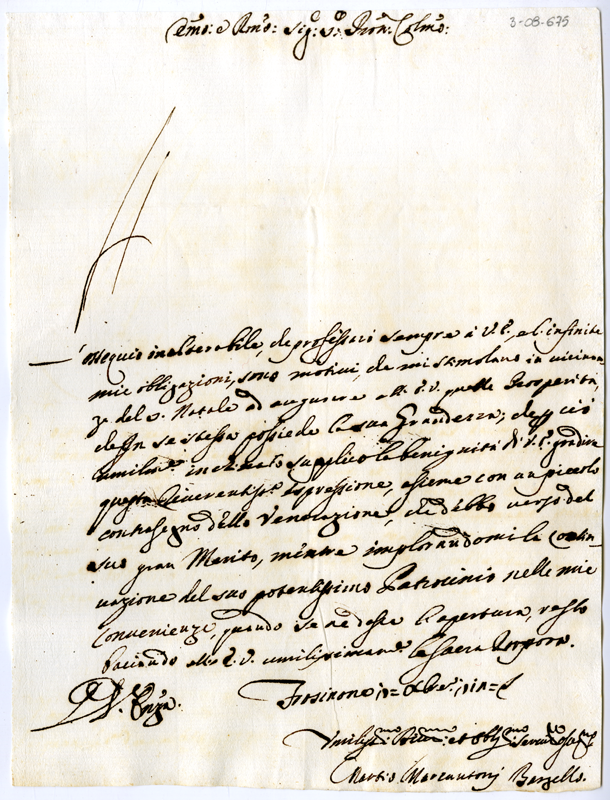 3-08-675
Emo: e Rmo: Sig:e S:r Pron: Colmo:
L'ossequio inalterabile, che professai sempre à V.E., e l'infinite
mie obligazioni, sono motivi, che mi stimolano in vicinan
za del S. Natale ad augurare all'E.V. quelle Prosperità,
che in se stessa possiede la sua Grandezza; che perciò
umilmte inclinato supplico la benignità di V.E. gradire
questa riverentissa espressione, assieme con un piccolo
contrasegno dello Venerazione, che debbo verso del
suo gran Merito, mentre implorandomi la contin
uazione del suo potentissimo Patrocinio nelle mie
convenienze, quando se ne desse l'apertura, resto
faciendo all'E.V. umilissimamte la Sacra Porpora.
Frosinone Xbre
Umilissmo et Obligmo Servre
Marcantonj